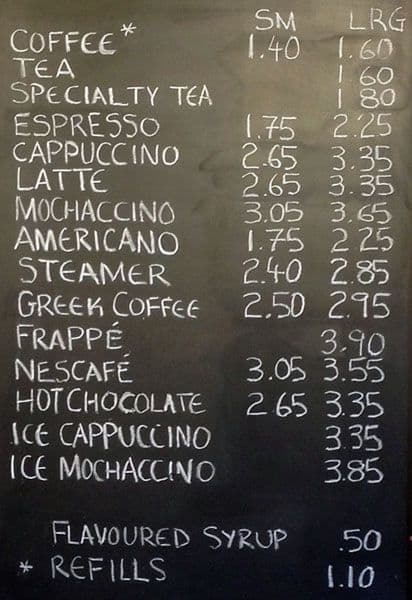 SM LRG
COFFEE* 1.40 1.60
TEA 1 60
SPECIALTY TEA 1 80
ESPRESSO 1.75 2.25
CAPPUCCINO 2.65 3.35
LATTE 2.65 3.35
MOCHACCINO 3.05 3.65
AMERICANO 1.75 2 25
STEAMER 2.40 2.85
GREEK COFFEE 2.50 2.95
FRAPPÉ 3.90
NESCAFÉ 3.05 3.55
HOT CHOCOLATE 2.65 3.35
ICE CAPPUCCINO 3.35
ICE MOCHACCINO 3.85
FLAVOURED SYRUP .50
* REFILLS 1.10